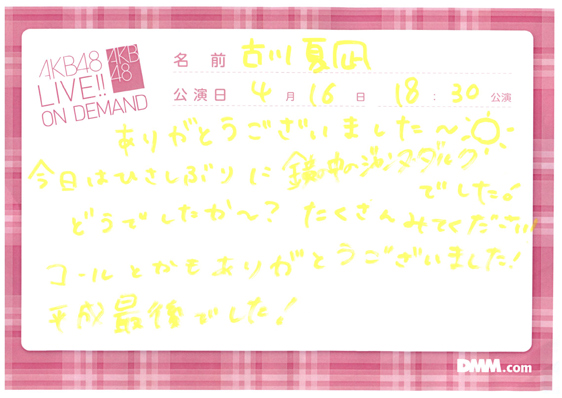 AKB48
LIVE!!
ON DEMAND
AKB
48
名前 古川夏凪
公演日 4月16日 18:30公演
ありがとうございました〜
今日はひさしぶりに鏡の中のジャンヌ・ダルク
でした!
どうでしたか〜? たくさんみてください
コールとかもありがとうございました!
平成最後でした!
DMM.com